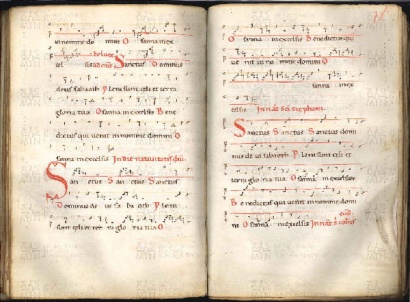 in nomine do mini O sanna in ex
cel sis Sanctus Dominus
deus sabaoth Pleni sunt celi et terra
gloria tua Osanna in excelsis Bene
dictus qui venit in nomine domini O
sanna in excelsis In die
San ctus San ctus Sanctus
Dominus de us sa ba oth Pleni
sunt celi et ter ra glo ria tua O
O sanna in excelsis Benedictus qui
ve nit in no mine domini O
sanna in ex
celsis In
Sanctus Sanctus Sanctus domi
nus de us sabaoth Pleni sunt celi et
terra glo ria tua Osanna in excelsis
Be nedictus qui venit in nomine domi
ni O sanna in excelsis